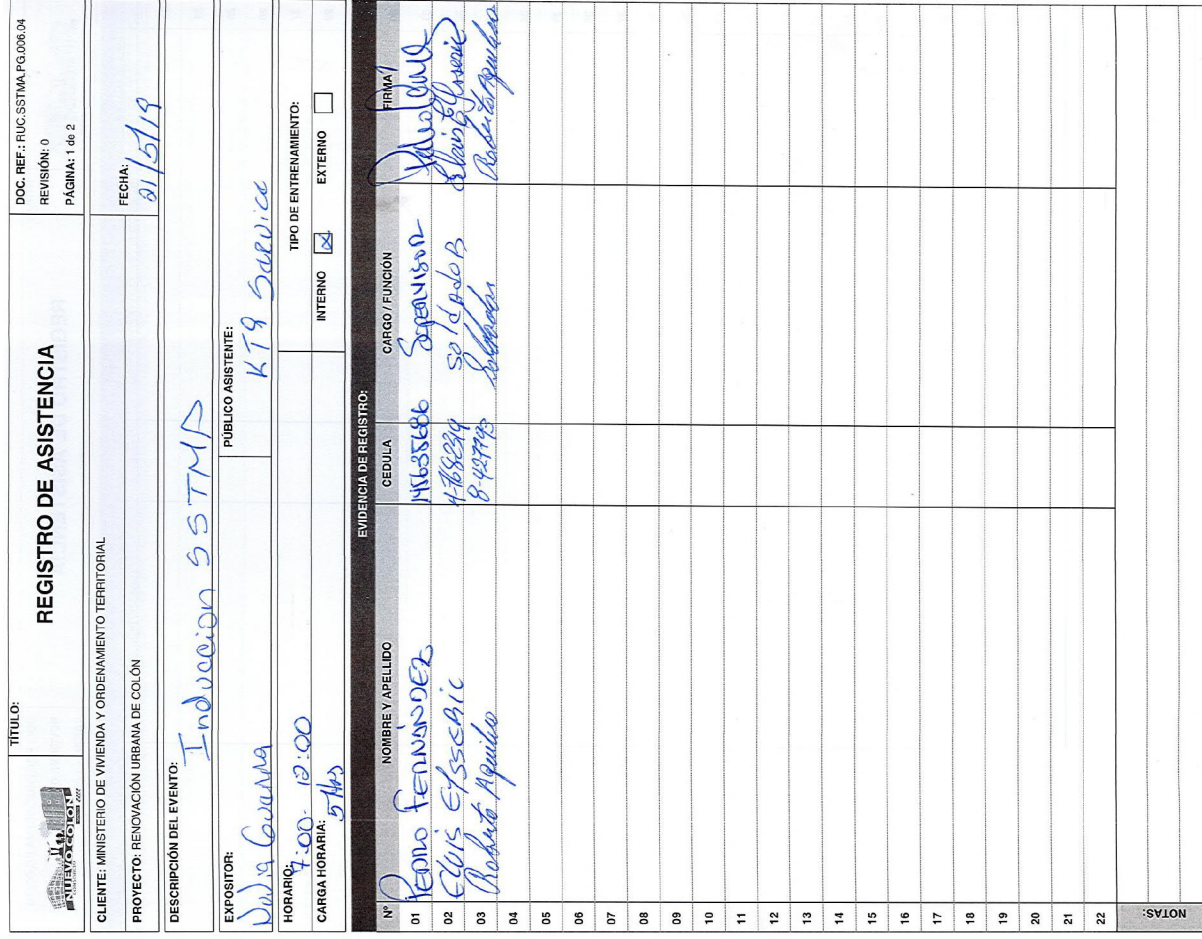 NUEVO COLÓN
CONSORCIO
TÍTULO:
REGISTRO DE ASISTENCIA
DOC. REF.: RUC.SSTMA.PG.006.04
REVISIÓN: 0
PÁGINA: 1 de 2
CLIENTE: MINISTERIO DE VIVIENDA Y ORDENAMIENTO TERRITORIAL
PROYECTO: RENOVACIÓN URBANA DE COLÓN
FECHA: 21/5/19
DESCRIPCIÓN DEL EVENTO:
Induccion SSTMA
EXPOSITOR:
PÚBLICO ASISTENTE:
KT9 Service
HORARIO:
7:00- 12:00
CARGA HORARIA:
5 Hrs
TIPO DE ENTRENAMIENTO:
INTERNO X EXTERNO
EVIDENCIA DE REGISTRO:
Nº NOMBRE Y APELLIDO CEDULA CARGO / FUNCIÓN FIRMA
01 Pedro Fernández Supervisor
02 soldador
03 Roberto Aguilar Soldador
04
05
06
07
08
09
10
11
12
13
14
15
16
17
18
19
20
21
22
NOTAS: